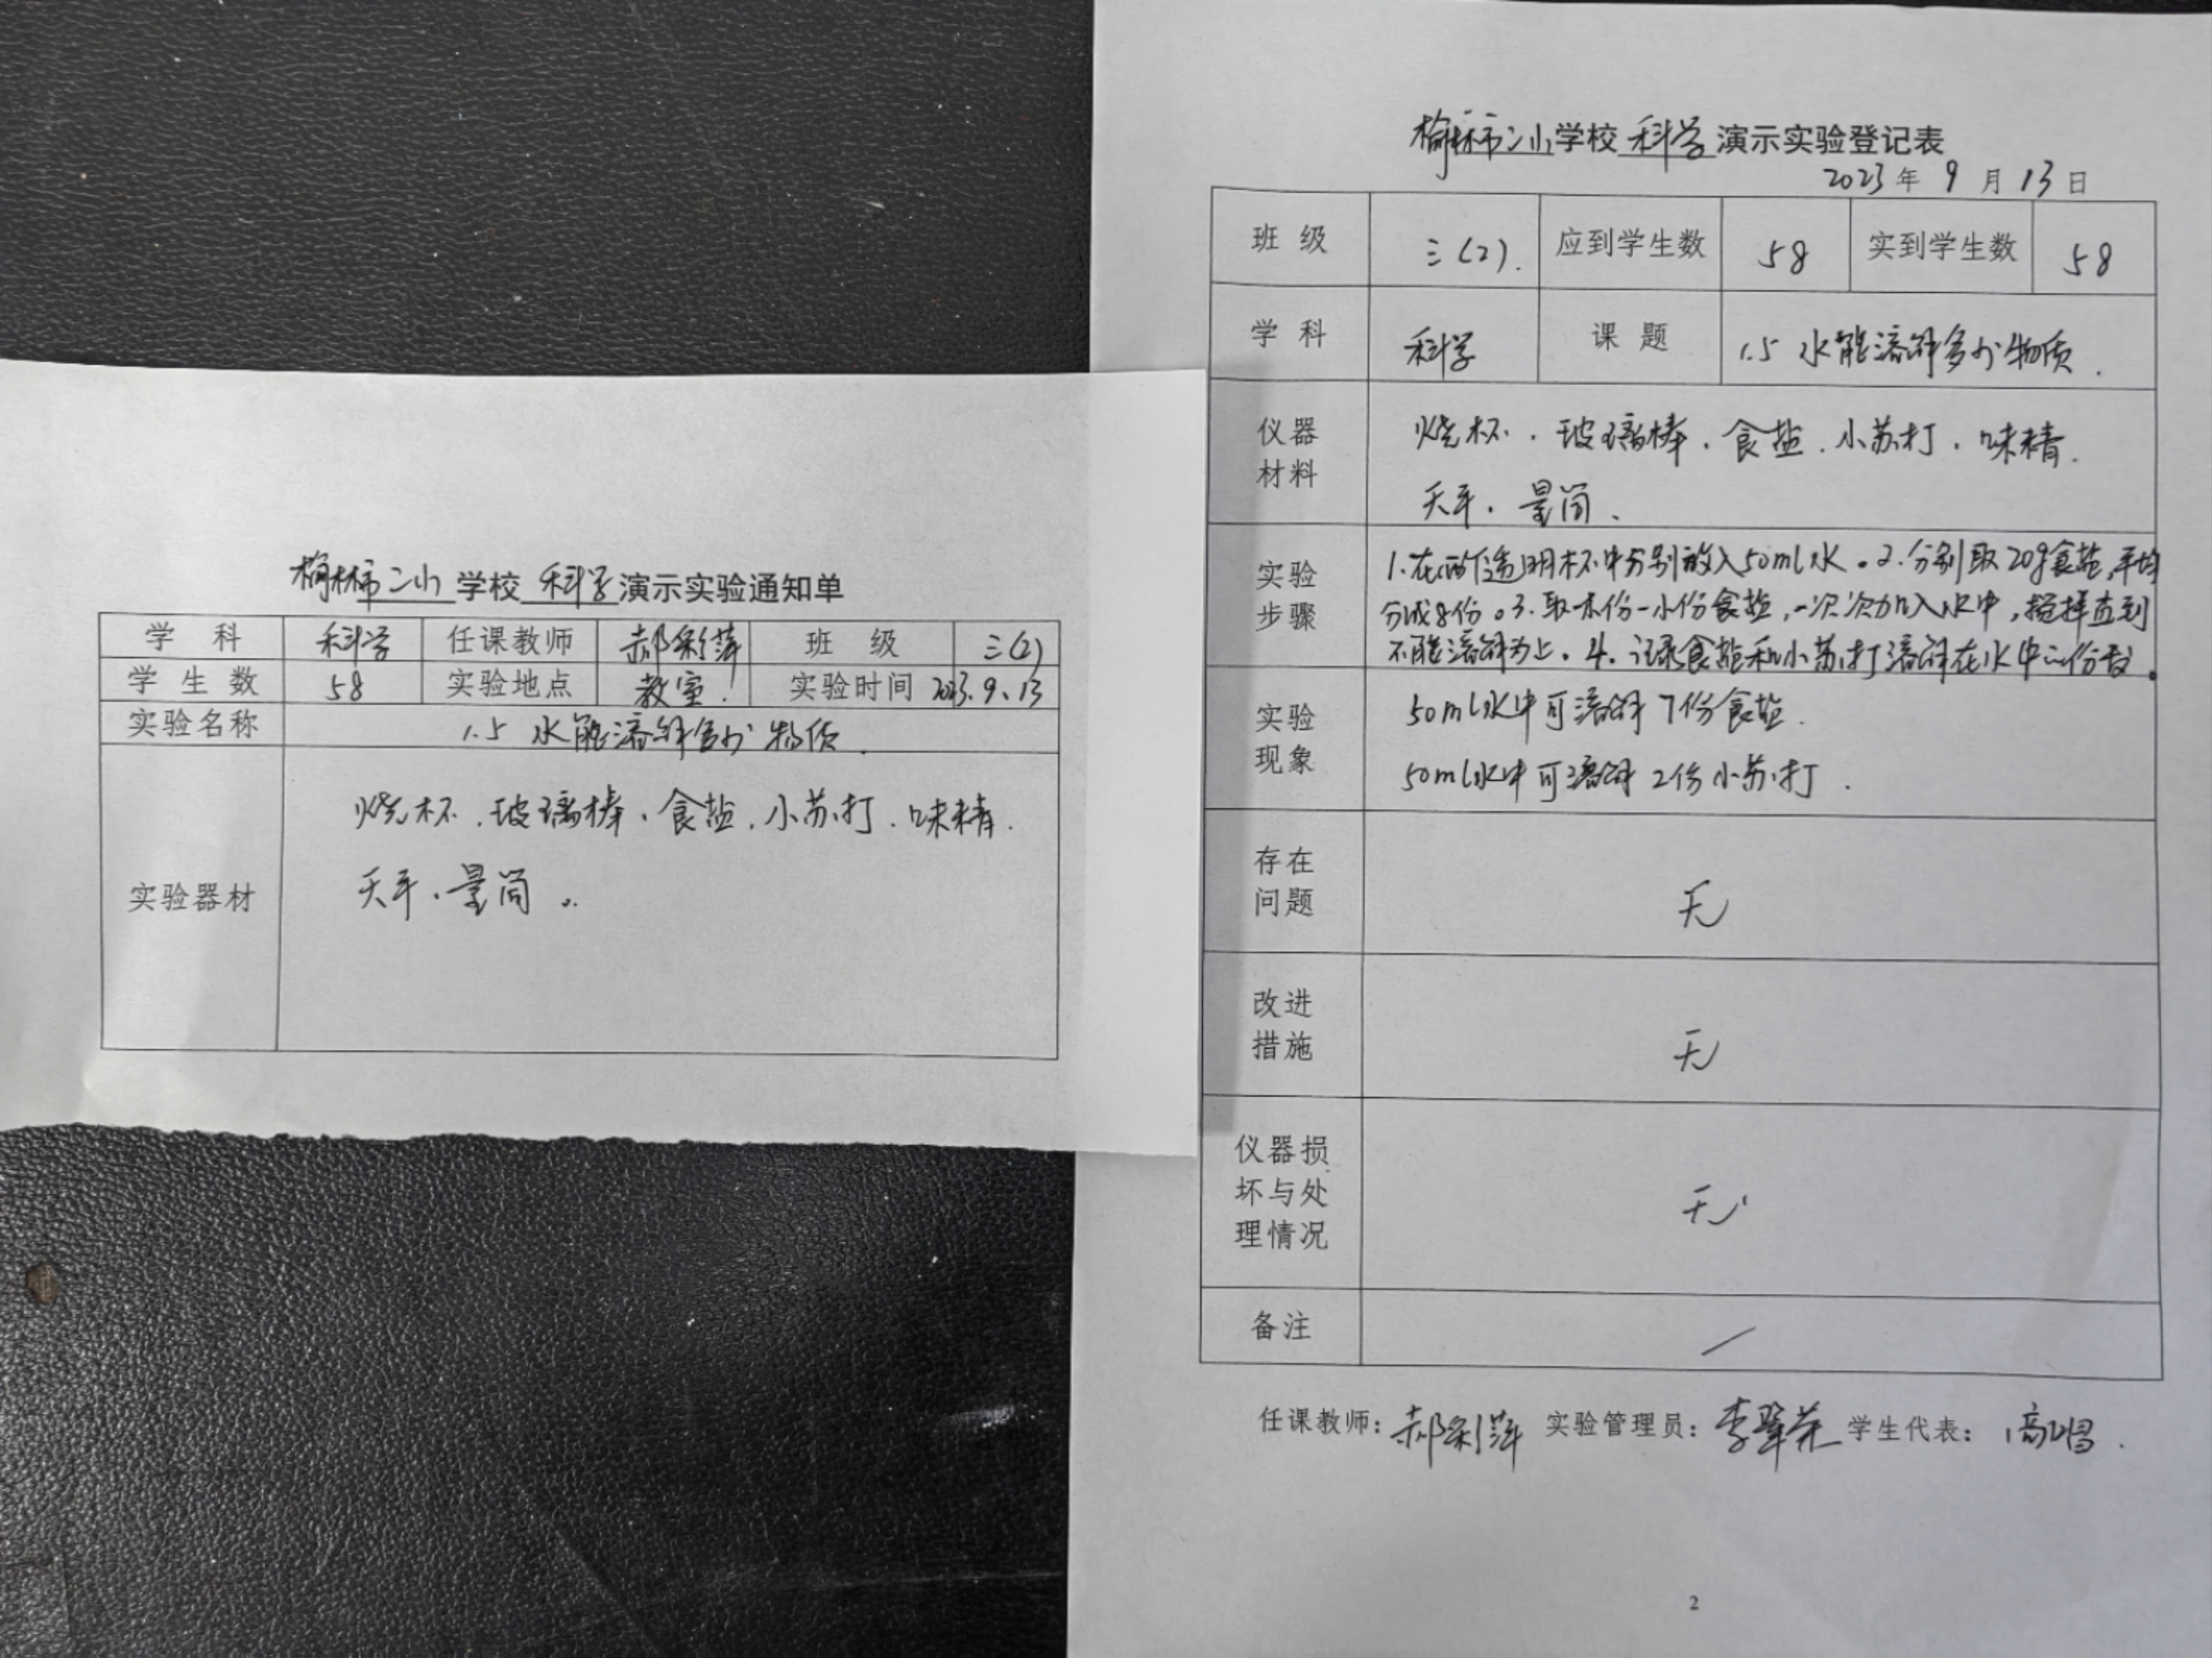 榆林市二小学校 科学 演示实验通知单
学 科 科学 任课教师 郝彩萍 班 级 三(2)
学 生 数 58 实验地点 教室. 实验时间 2023.9.13
实验名称 1.5 水能溶解多少物质.
实验器材
烧杯、玻璃棒、食盐、小苏打、味精.
天平、量筒。
榆林市二小学校 科学 演示实验登记表
2023年 9 月 13 日
班 级 三(2). 应到学生数 58 实到学生数 58
学 科 科学 课 题 1.5 水能溶解多少物质.
仪器
材料
烧杯、玻璃棒、食盐、小苏打、味精.
天平、量筒、
实验
步骤
1.在两个透明杯中分别放入50ml水。2.分别取20g食盐,平均
分成8份。3.取一小份食盐,一次次加入水中,搅拌直到
不能溶解为止。4.记录食盐和小苏打溶解在水中的份数。
实验
现象
50ml水中可溶解7份食盐.
50ml水中可溶解2份小苏打.
存在
问题
无
改进
措施
无
仪器损
坏与处
理情况
无
备注
/
任课教师: 郝彩萍 实验管理员: 李 学生代表: 高
2